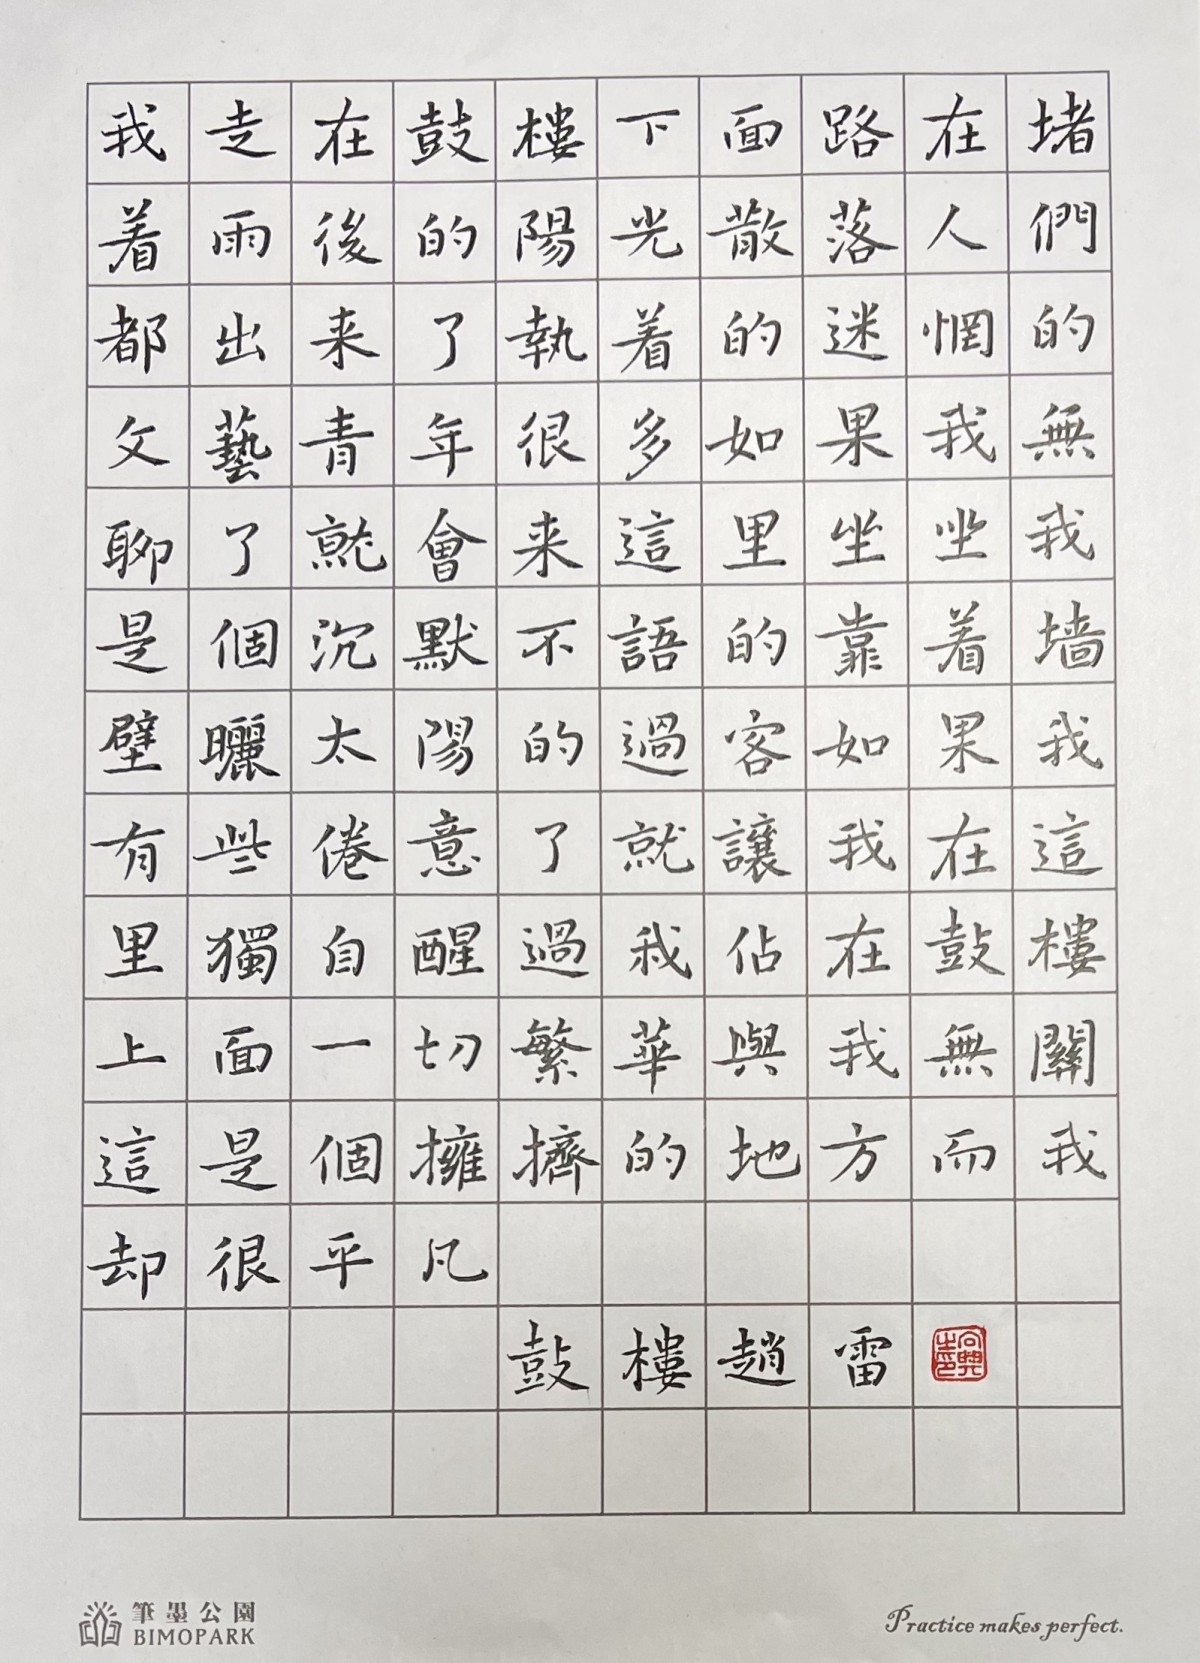 我走在鼓樓下面路在堵
着雨後的陽光散落人們
都出来了執着的迷惘的
文藝青年很多如果我無
聊了就會来這里坐坐我
是個沉默不語的靠着墙
壁曬太陽的過客如果我
有些倦意了就讓我在這
里獨自醒過我佔在鼓樓
上面一切繁華與我無關
這是個擁擠的地方而我
却很平凡
鼓樓趙雷
筆墨公園
BIMOPARK
Practice makes perfect.